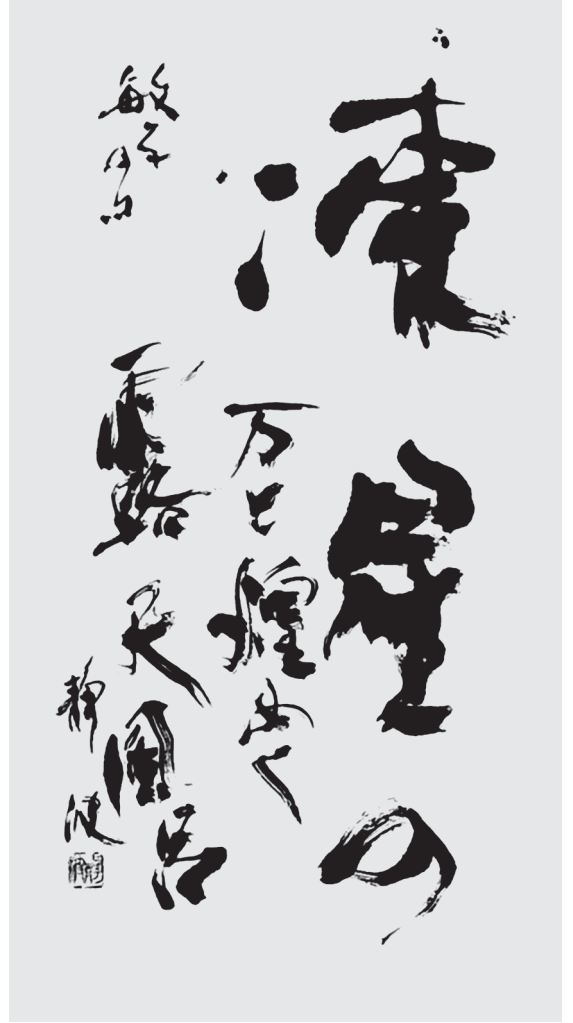 凍星の
万と煌めく
露天風呂
敏子の句
静健